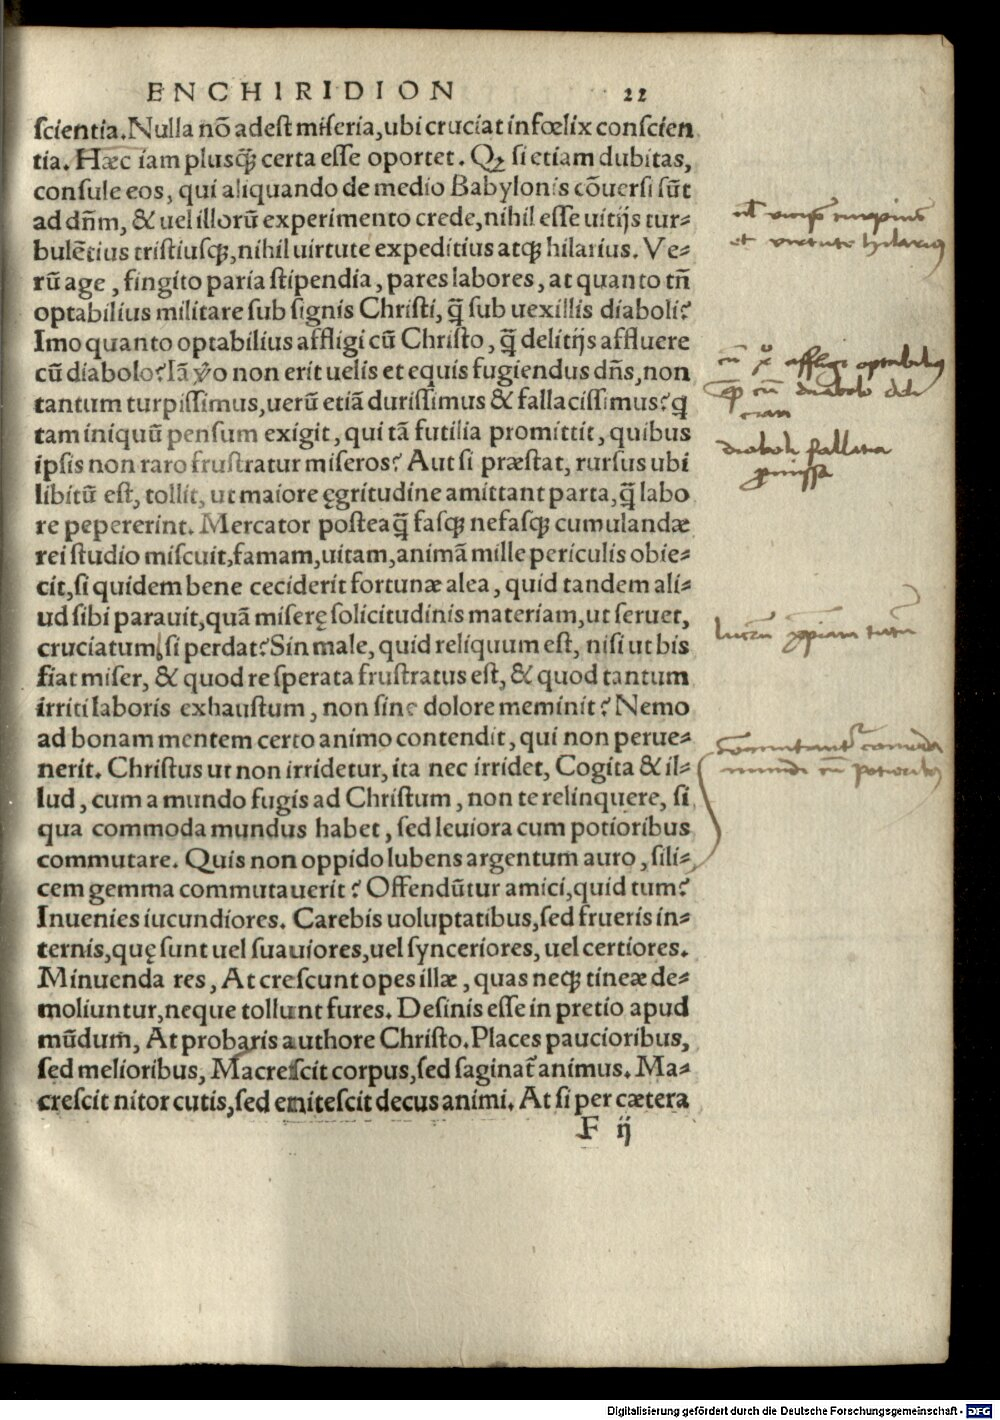 ENCHIRIDION 22
scientia. Nulla nō adest miseria, ubi cruciat infœlix conscien
tia. Hæc iam plusq̃ certa esse oportet. Qꝫ si etiam dubitas,
consule eos, qui aliquando de medio Babylonis cōuersi sūt
ad dñm, & uel illorū experimento crede, nihil esse uitijs tur-
bulētius tristiusqꝫ, nihil uirtute expeditius atqꝫ hilarius. Ve-
rū age, fingito paria stipendia, pares labores, at quanto tñ
optabilius militare sub signis Christi, q̃ sub uexillis diaboli?
Imo quanto optabilius affligi cū Christo, q̃ delitijs affluere
cū diabolo? Iā ỽo non erit uelis et equis fugiendus dñs, non
tantum turpissimus, uerū etiā durissimus & fallacissimus? q
tam iniquū pensum exigit, qui tā futilia promittit, quibus
ipsis non raro frustratur miseros? Aut si præstat, rursus ubi
libitū est, tollit, ut maiore ęgritudine amittant parta, q̃ labo
re pepererint. Mercator posteaq̃ fasqꝫ nefasqꝫ cumulandæ
rei studio miscuit, famam, uitam, animā mille periculis obie-
cit, si quidem bene ceciderit fortunæ alea, quid tandem ali-
ud sibi parauit, quā miserę solicitudinis materiam, ut seruet,
cruciatum, si perdat? Sin male, quid reliquum est, nisi ut bis
fiat miser, & quod re sperata frustratus est, & quod tantum
irriti laboris exhaustum, non sine dolore meminit? Nemo
ad bonam mentem certo animo contendit, qui non perue-
nerit. Christus ut non irridetur, ita nec irridet, Cogita & il-
lud, cum a mundo fugis ad Christum, non te relinquere, si
qua commoda mundus habet, sed leuiora cum potioribus
commutare. Quis non oppido lubens argentum auro, sili-
cem gemma commutauerit? Offendūtur amici, quid tum?
Inuenies iucundiores. Carebis uoluptatibus, sed frueris in-
ternis, quę sunt uel suauiores, uel synceriores, uel certiores.
Minuenda res, At crescunt opes illæ, quas neqꝫ tineæ de-
moliuntur, neque tollunt fures. Desinis esse in pretio apud
mūdum, At probaris authore Christo. Places paucioribus,
sed melioribus, Macrescit corpus, sed saginat̃ animus. Ma-
crescit nitor cutis, sed enitescit decus animi. At si per cætera
F ij
et virtute hilarius
cū affligi optabilius
cū diabolo deli
ciari
diaboli fallatia
mundi cū potioribus
Digitalisierung gefördert durch die Deutsche Forschungsgemeinschaft - DFG